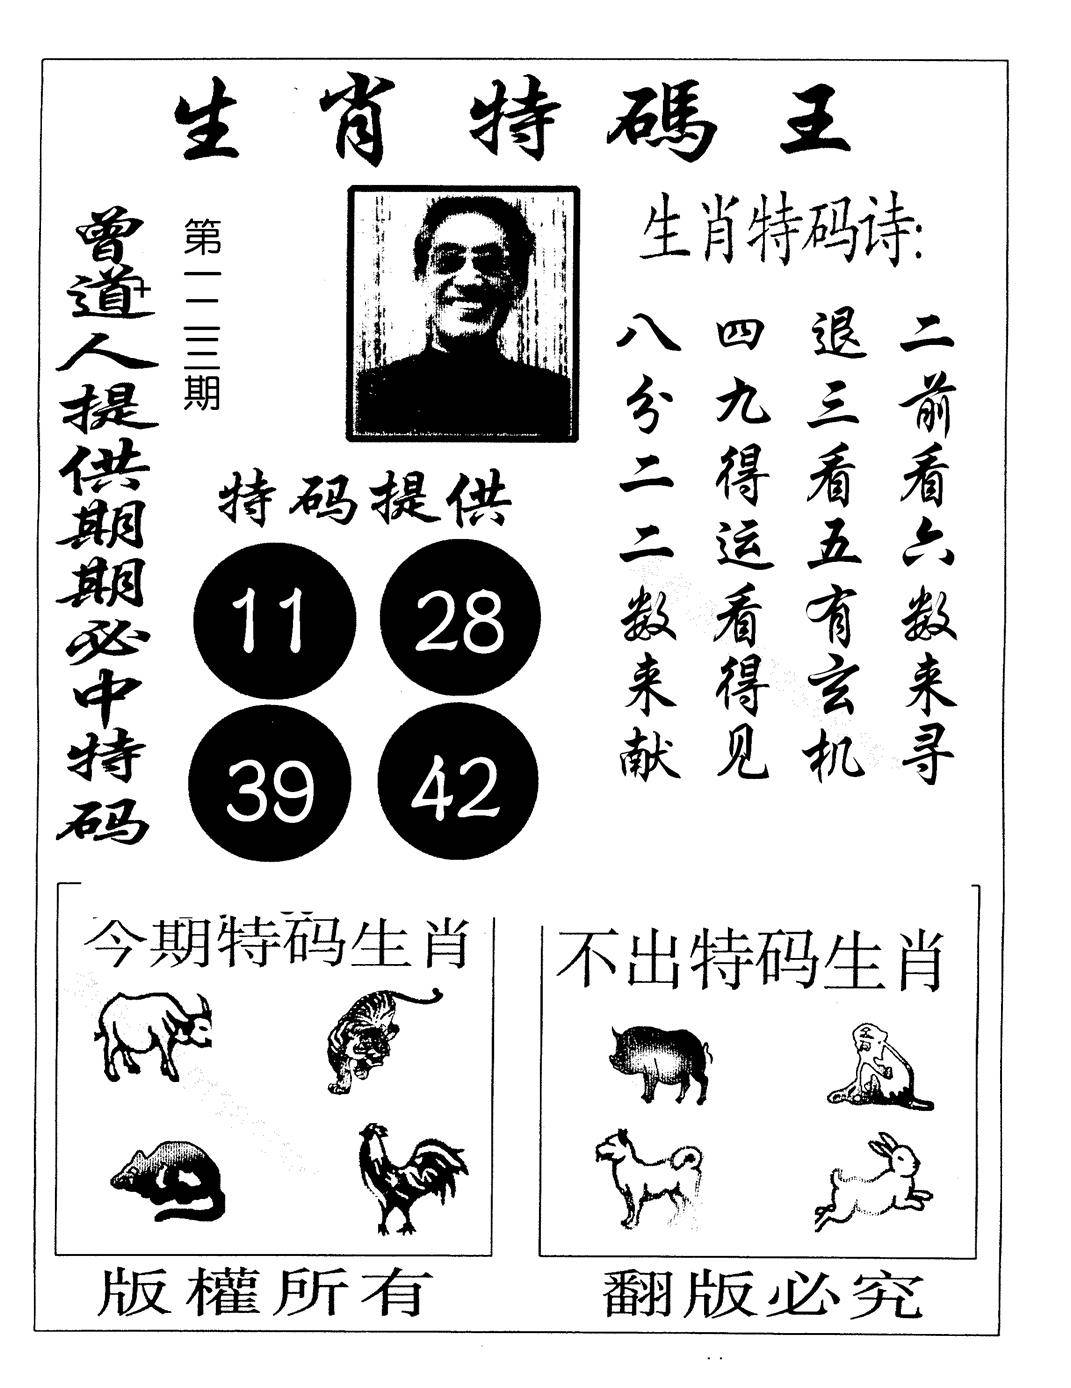 生肖特碼王
曾道人提供期期必中特码
第一二三期
生肖特码诗:
二前看六数来寻
退三看五有玄机
四九得运看得见
八分二二数来献
特码提供
11 28
39 42
今期特码生肖
不出特码生肖
版權所有
翻版必究